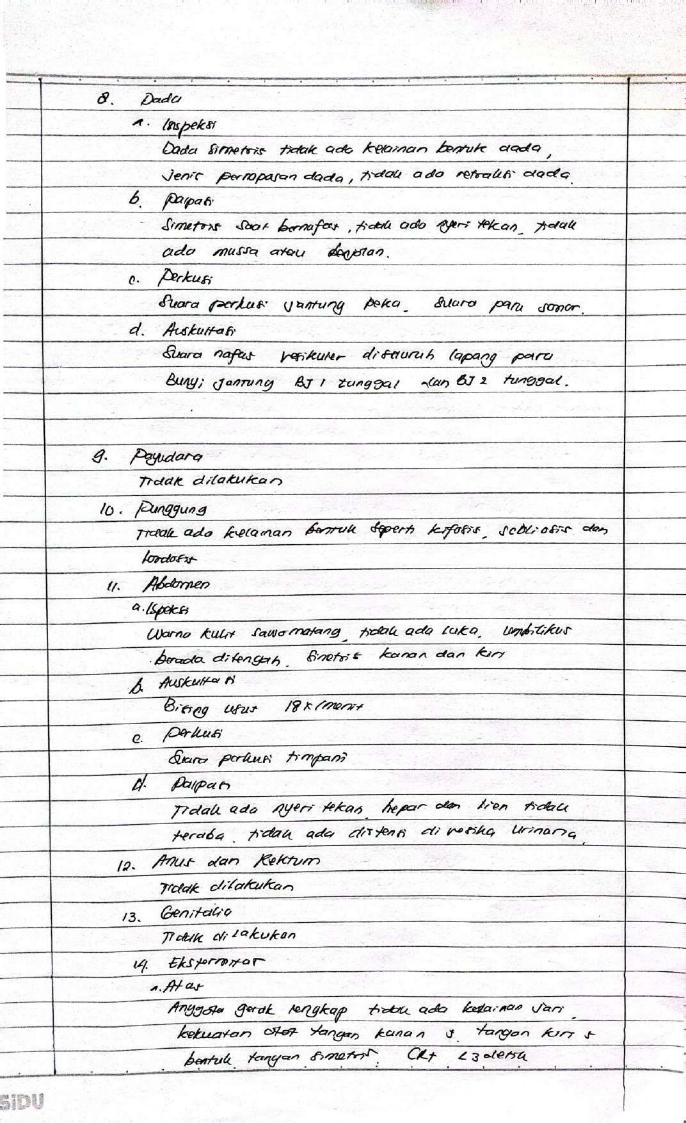 8. Dada
a. Inspeksi
Dada simetris tidak ada kelainan bentuk dada,
jenis pernapasan dada, tidak ada retraksi dada.
b. Palpasi
Simetris saat bernafas, tidak ada nyeri tekan, tidak
ada massa atau benjolan.
c. Perkusi
Suara perkusi jantung peka. Suara paru sonor.
d. Auskultasi
Suara nafas vesikuler diseluruh lapang paru
Bunyi jantung BJ 1 tunggal dan BJ 2 tunggal.
9. Payudara
Tidak dilakukan
10. Punggung
Tidak ada kelainan bentuk seperti kifosis, scoliosis dan
lordosis
11. Abdomen
a. Ispeksi
Warna kulit sawo matang, tidak ada luka, umbilikus
berada ditengah, simetris kanan dan kiri
b. Auskultasi
Bising usus 18x/menit
c. Perkusi
Suara perkusi timpani
d. Palpasi
Tidak ada nyeri tekan, hepar dan lien tidak
teraba, tidak ada distensi di vesika urinaria.
12. Anus dan Rektum
Tidak dilakukan
13. Genitalia
Tidak dilakukan
14. Ekstermitas
a. Atas
Anggota gerak lengkap tidak ada kelainan jari,
kekuatan otot tangan kanan 5 tangan kiri 5
bentuk tangan simetris, CRT <3 detik
SiDU